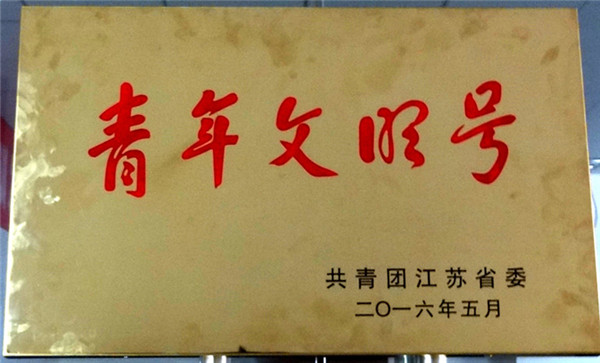 青年文明号
共青团江苏省委
二〇一六年五月